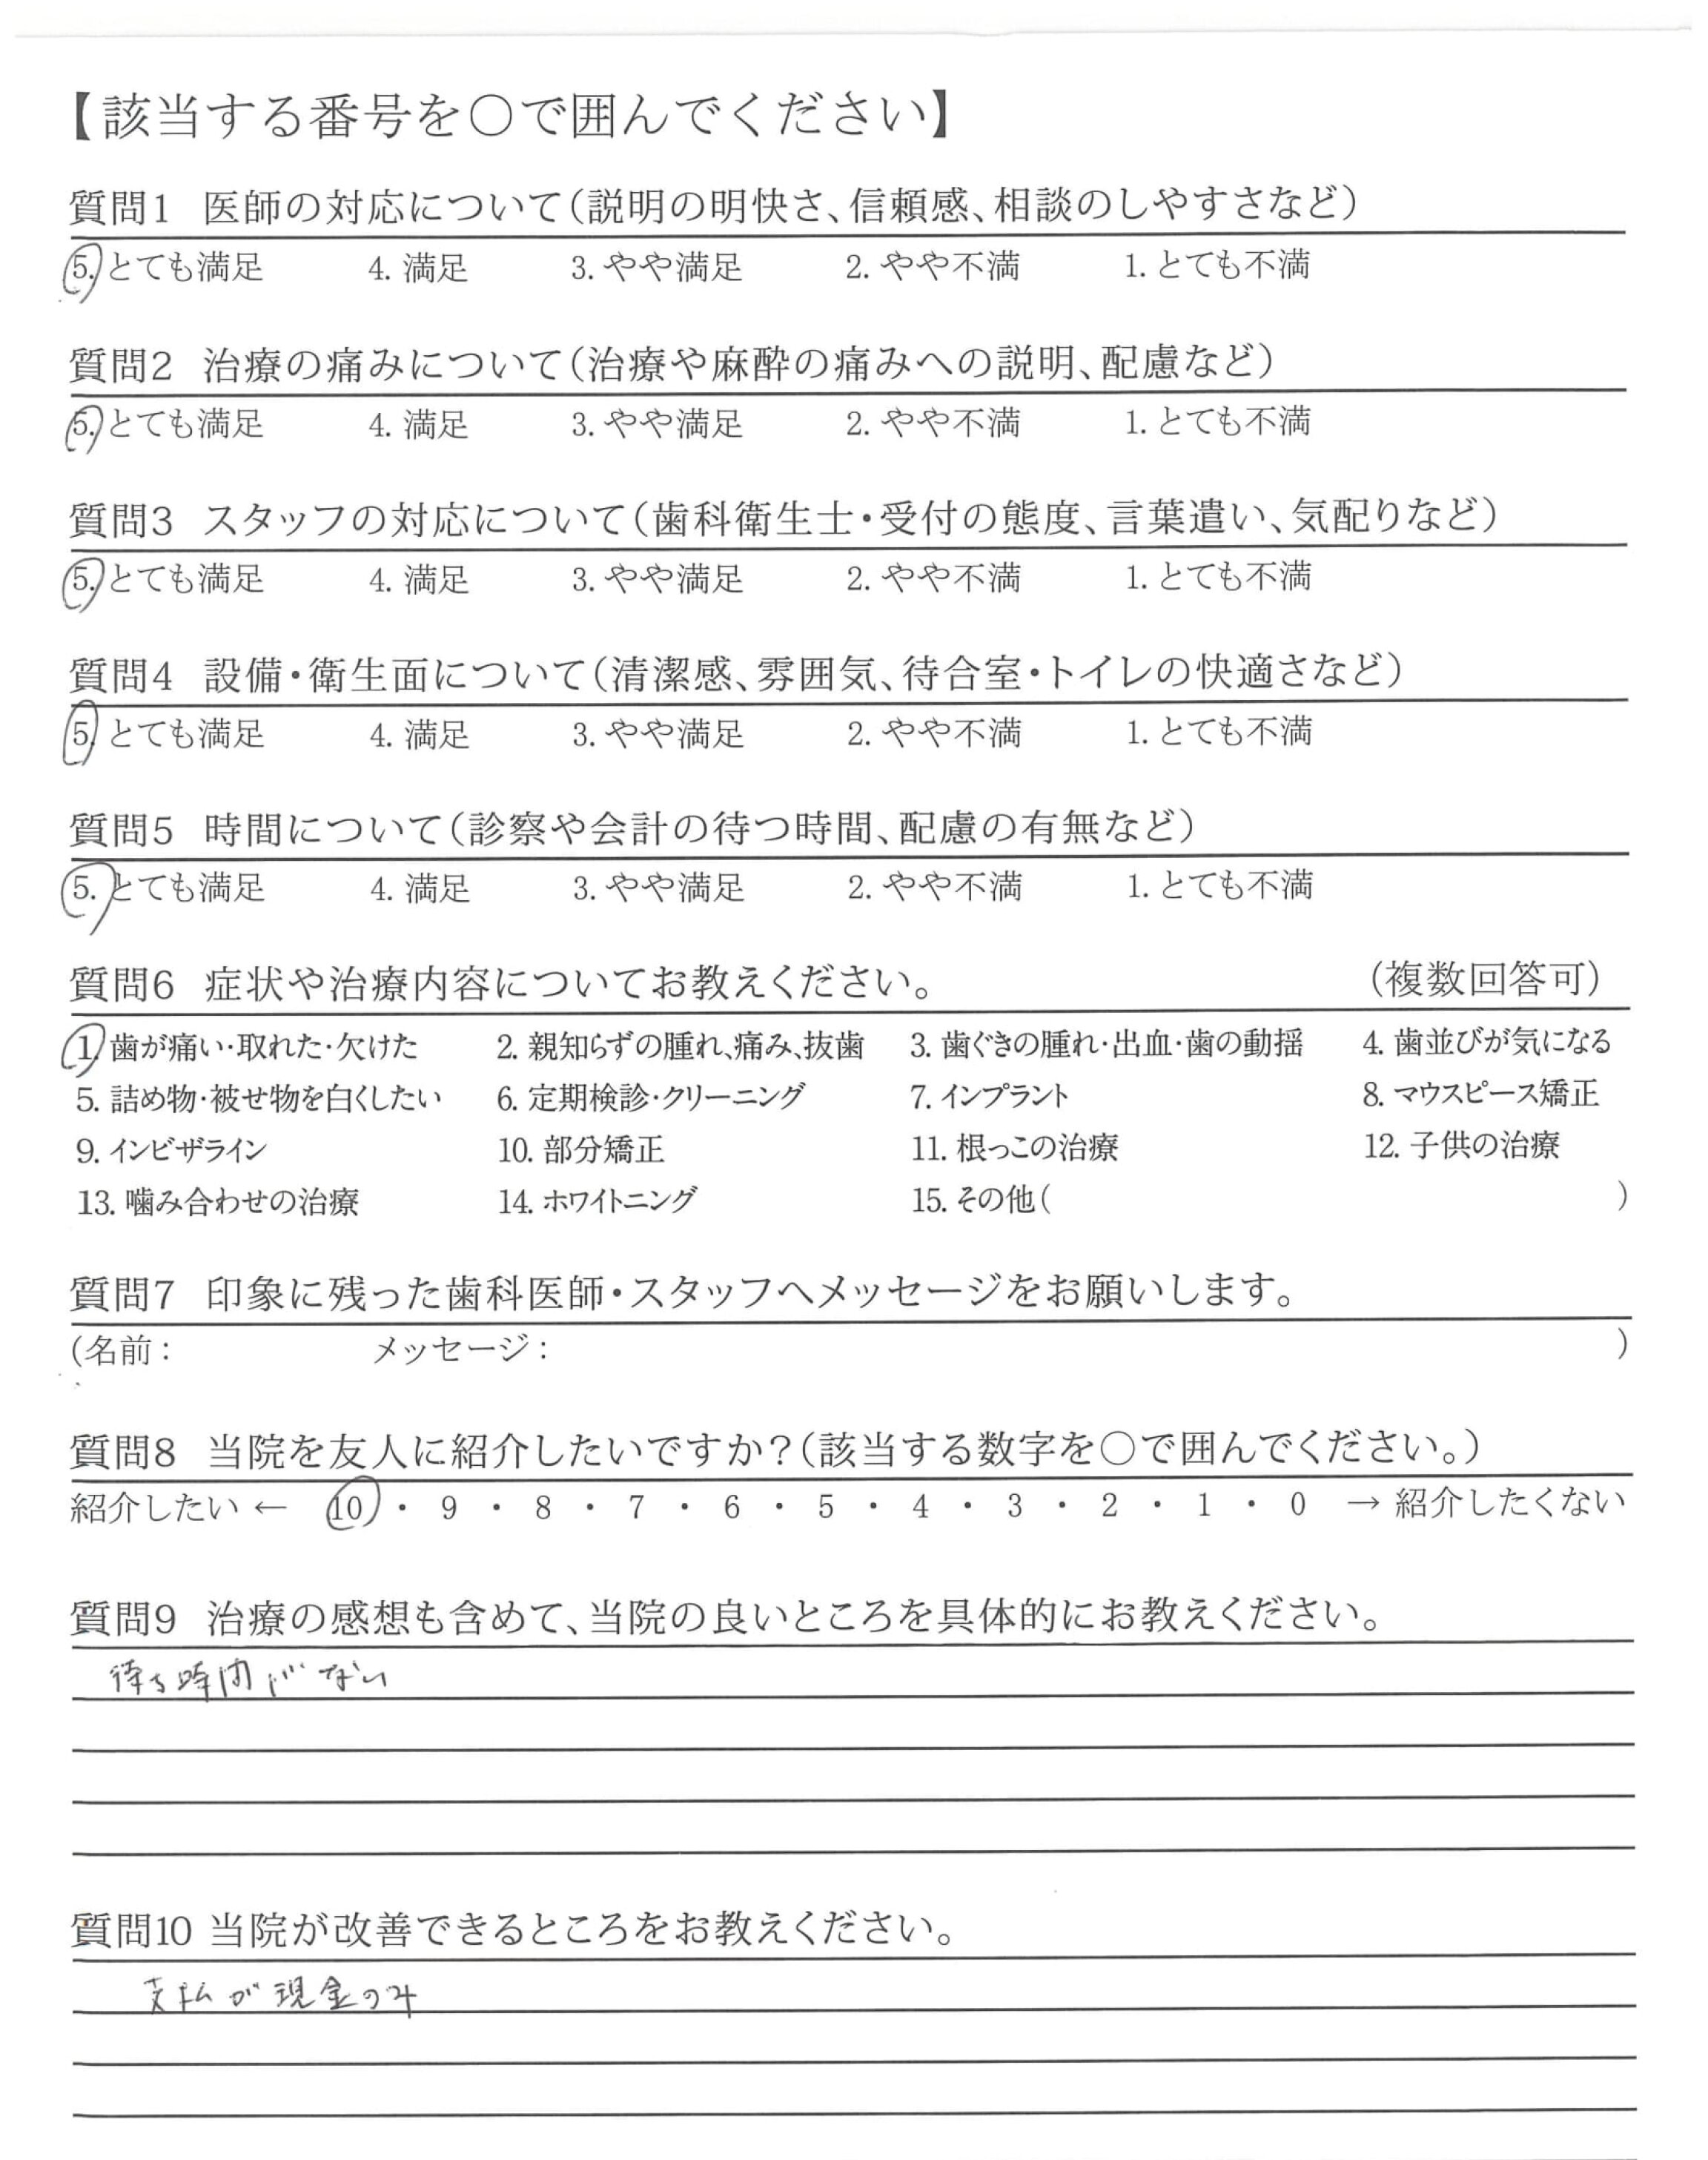 【該当する番号を〇で囲んでください】
質問1 医師の対応について(説明の明快さ、信頼感、相談のしやすさなど)
5. とても満足 4. 満足 3. やや満足 2. やや不満 1. とても不満
質問2 治療の痛みについて(治療や麻酔の痛みへの説明、配慮など)
5. とても満足 4. 満足 3. やや満足 2. やや不満 1. とても不満
質問3 スタッフの対応について(歯科衛生士・受付の態度、言葉遣い、気配りなど)
5. とても満足 4. 満足 3. やや満足 2. やや不満 1. とても不満
質問4 設備・衛生面について(清潔感、雰囲気、待合室・トイレの快適さなど)
5. とても満足 4. 満足 3. やや満足 2. やや不満 1. とても不満
質問5 時間について(診察や会計の待つ時間、配慮の有無など)
5. とても満足 4. 満足 3. やや満足 2. やや不満 1. とても不満
質問6 症状や治療内容についてお教えください。 (複数回答可)
1. 歯が痛い・取れた・欠けた 2. 親知らずの腫れ、痛み、抜歯 3. 歯ぐきの腫れ・出血・歯の動揺 4. 歯並びが気になる
5. 詰め物・被せ物を白くしたい 6. 定期検診・クリーニング 7. インプラント 8. マウスピース矯正
9. インビザライン 10. 部分矯正 11. 根っこの治療 12. 子供の治療
13. 噛み合わせの治療 14. ホワイトニング 15. その他( )
質問7 印象に残った歯科医師・スタッフへメッセージをお願いします。
(名前: メッセージ: )
質問8 当院を友人に紹介したいですか?(該当する数字を〇で囲んでください。)
紹介したい ← 10 ・ 9 ・ 8 ・ 7 ・ 6 ・ 5 ・ 4 ・ 3 ・ 2 ・ 1 ・ 0 → 紹介したくない
質問9 治療の感想も含めて、当院の良いところを具体的にお教えください。
待ち時間がない
質問10 当院が改善できるところをお教えください。
支払が現金のみ